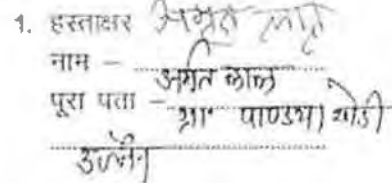 1. हस्ताक्षर अमृत लाल
नाम - अमृत लाल
पूरा पता - ग्रा पाण्डया खेडी
उज्जैन